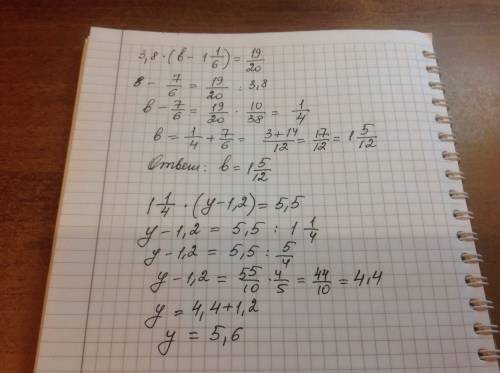 3,8 · (в − 1 1/6) = 19/20
в − 7/6 = 19/20 : 3,8
в − 7/6 = 19/20 · 10/38 = 1/4
в = 1/4 + 7/6 = 3+14/12 = 17/12 = 1 5/12
Ответ: в = 1 5/12
1 1/4 · (y − 1,2) = 5,5
y − 1,2 = 5,5 : 1 1/4
y − 1,2 = 5,5 : 5/4
y − 1,2 = 55/10 · 4/5 = 44/10 = 4,4
y = 4,4 + 1,2
y = 5,6